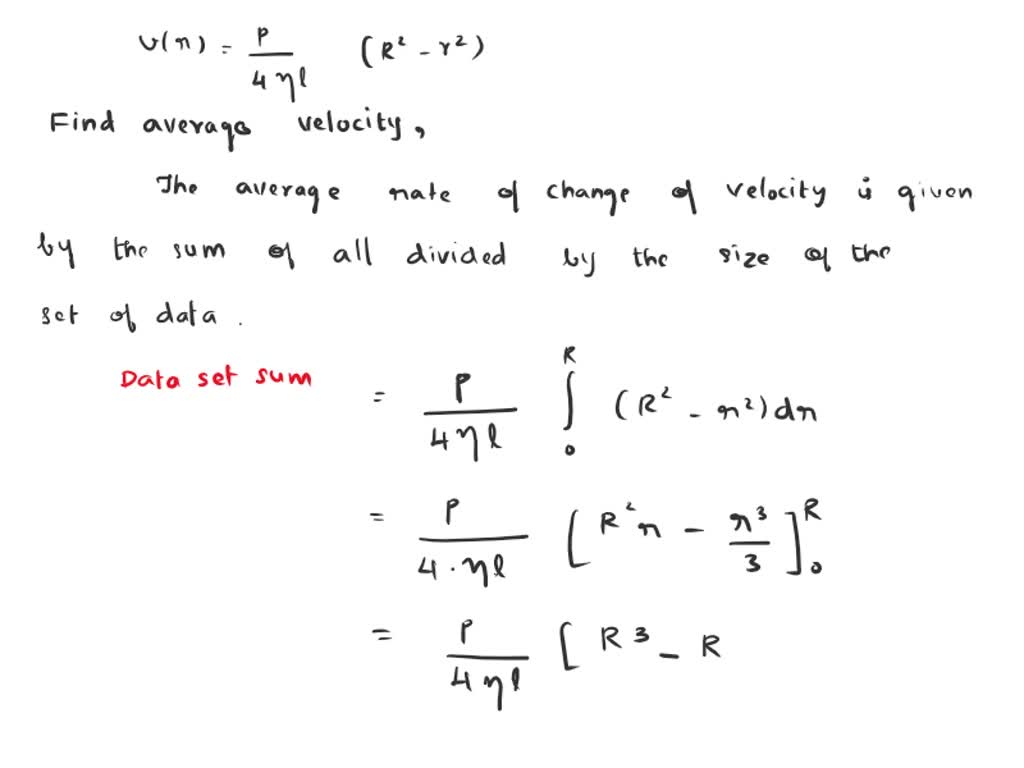 v(r) = P/4ηl (R² - r²)
Find average velocity,
The average rate of change of velocity is given
by the sum of all divided by the size of the
set of data.
Data set sum = P/4ηl ∫₀ᴿ (R² - r²) dr
= P/4·ηl [R²r - r³/3]₀ᴿ
= P/4ηl [R³ - R